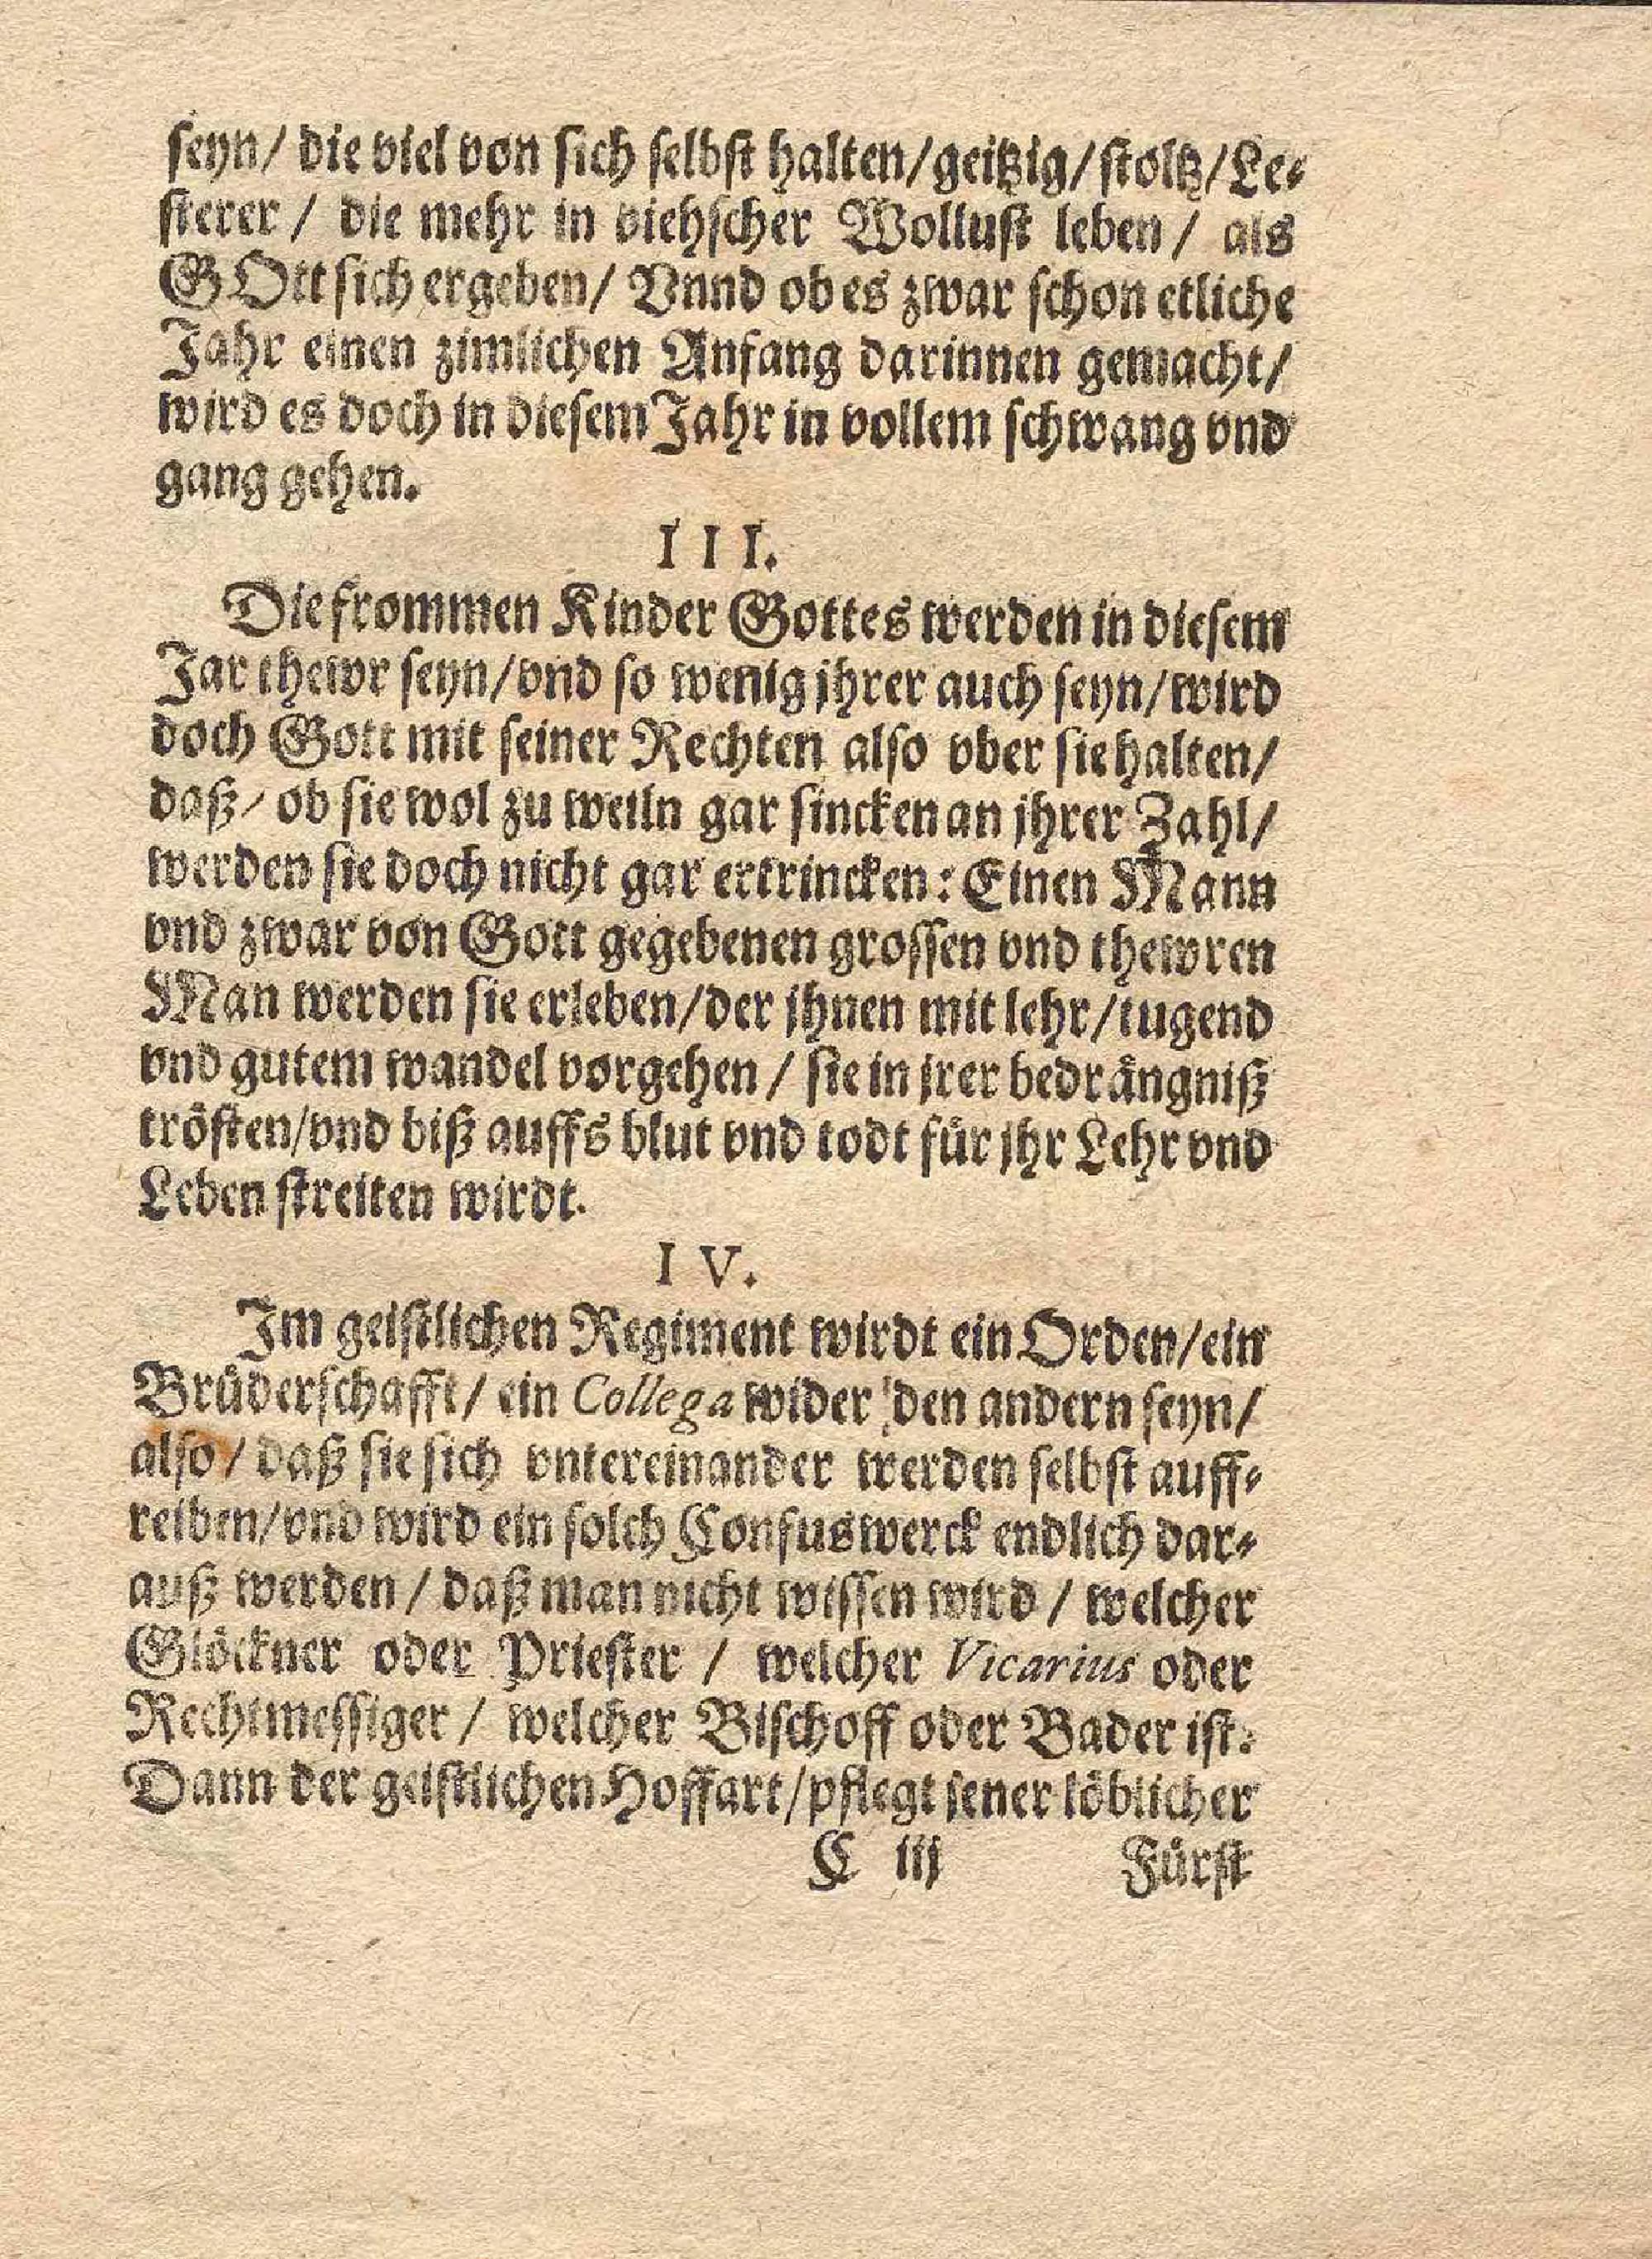 seyn/ die viel von sich selbst halten/geitzig/stoltz/Le-
sterer / die mehr in viehscher Wollust leben / als
GOtt sich ergeben/ Vnnd ob es zwar schon etliche
Jahr einen zimlichen Anfang darinnen gemacht/
wird es doch in diesem Jahr in vollem schwang vnd
gang gehen.
III.
Die frommen Kinder Gottes werden in diesem
Jar thewr seyn/vnd so wenig jhrer auch seyn/wird
doch Gott mit seiner Rechten also vber sie halten/
daß/ ob sie wol zu weiln gar sincken an jhrer Zahl/
werden sie doch nicht gar ertrincken: Einen Mann
vnd zwar von Gott gegebenen grossen vnd thewren
Man werden sie erleben/der jhnen mit lehr/tugend
vnd gutem wandel vorgehen / sie in jrer bedrängniß
trösten/vnd biß auffs blut vnd todt für jhr Lehr vnd
Leben streiten wirdt.
IV.
Im geistlichen Regiment wirdt ein Orden/ein
Brüderschafft/ ein Collega wider den andern seyn/
also/ daß sie sich vntereinander werden selbst auff-
reiben/vnd wird ein solch Confuswerck endlich dar-
auß werden / daß man nicht wissen wird / welcher
Glöckner oder Priester / welcher Vicarius oder
Rechtmessiger / welcher Bischoff oder Bader ist.
Dann der geistlichen Hoffart/pflegt jener löblicher
C iij Fürst